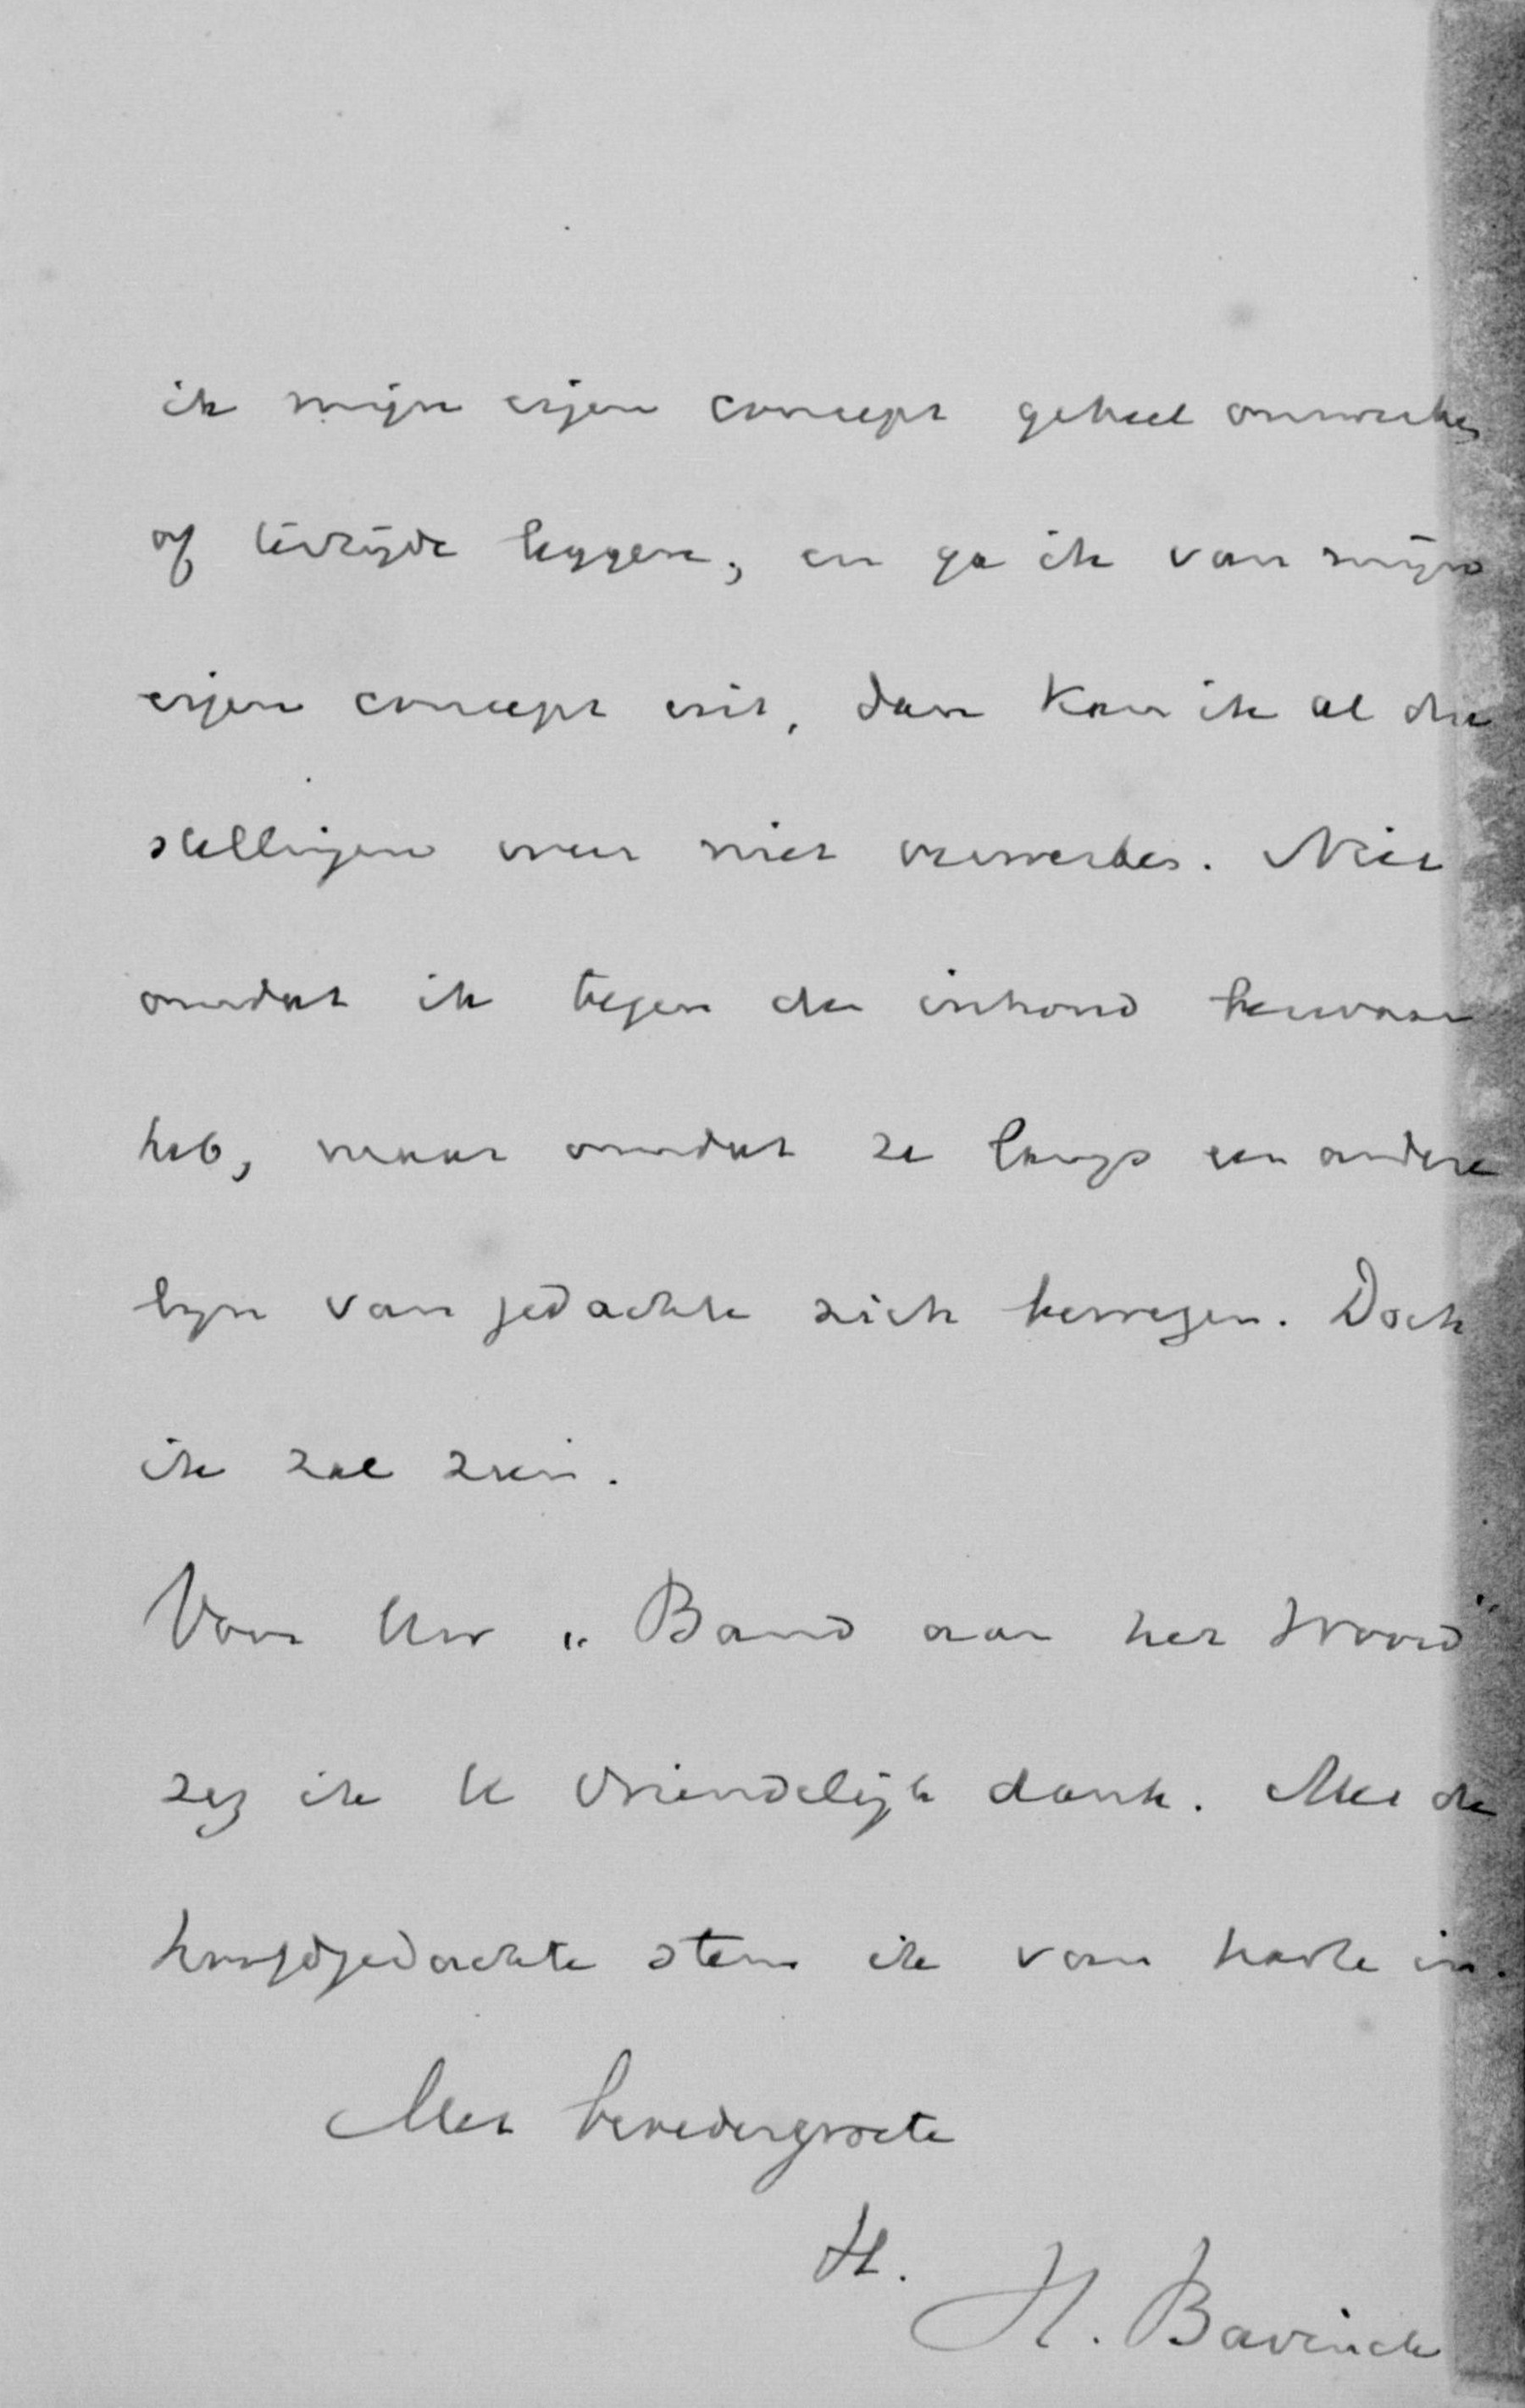 ik mijn eigen concept geheel omwerken
of terzijde leggen; en ga ik van mijn
eigen concept uit, dan kan ik al die
stellingen weer niet verwerken. Niet
omdat ik tegen den inhoud bezwaar
heb, maar omdat ze langs een andere
lijn van gedachte zich bewegen. Doch
ik zal zien.
Voor Uw „Band aan het Woord"
zeg ik U vriendelijk dank. Met de
hoofdgedachte stem ik van harte in.
Met broedergroete
H. Bavinck